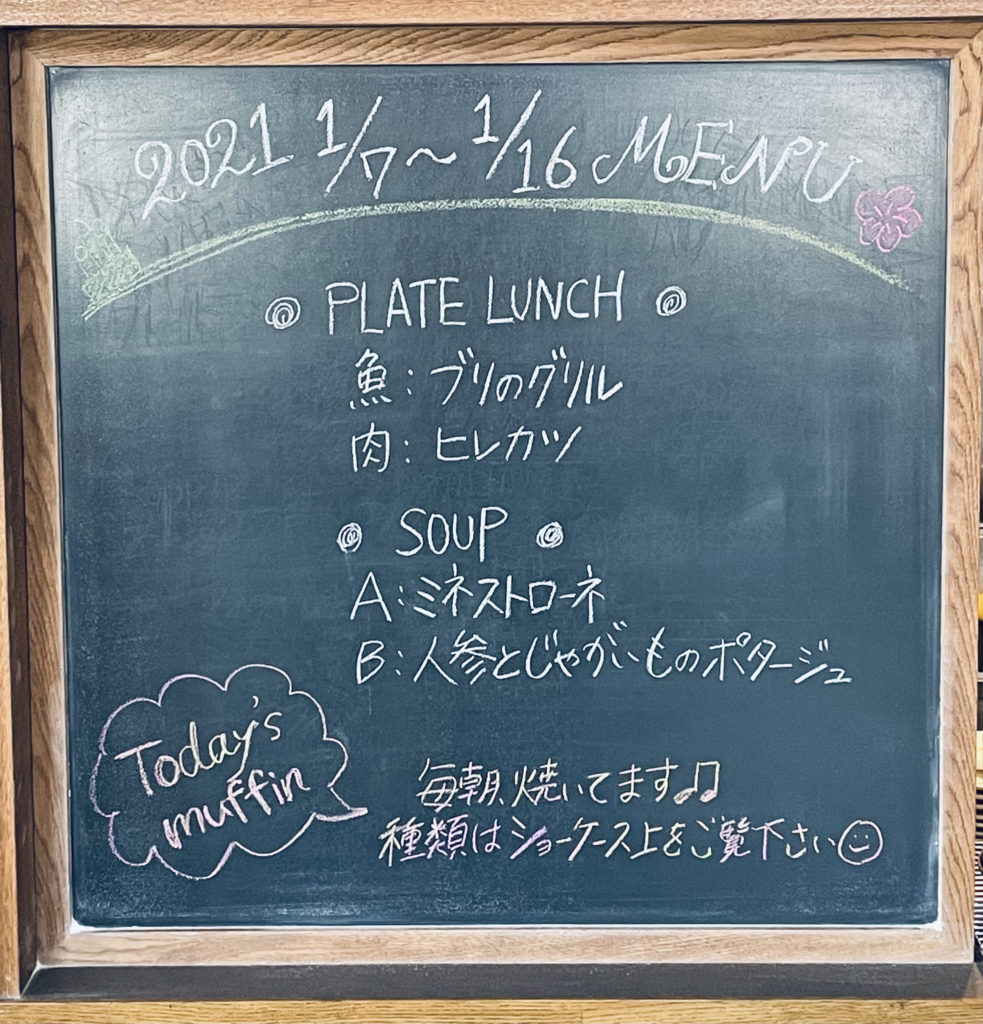 2021 1/7～1/16 MENU
◎ PLATE LUNCH ◎
魚：ブリのグリル
肉：ヒレカツ
◎ SOUP ◎
A：ミネストローネ
B：人参とじゃがいものポタージュ
Today's
muffin
毎朝、焼いてます♫
種類はショーケース上をご覧下さい☺